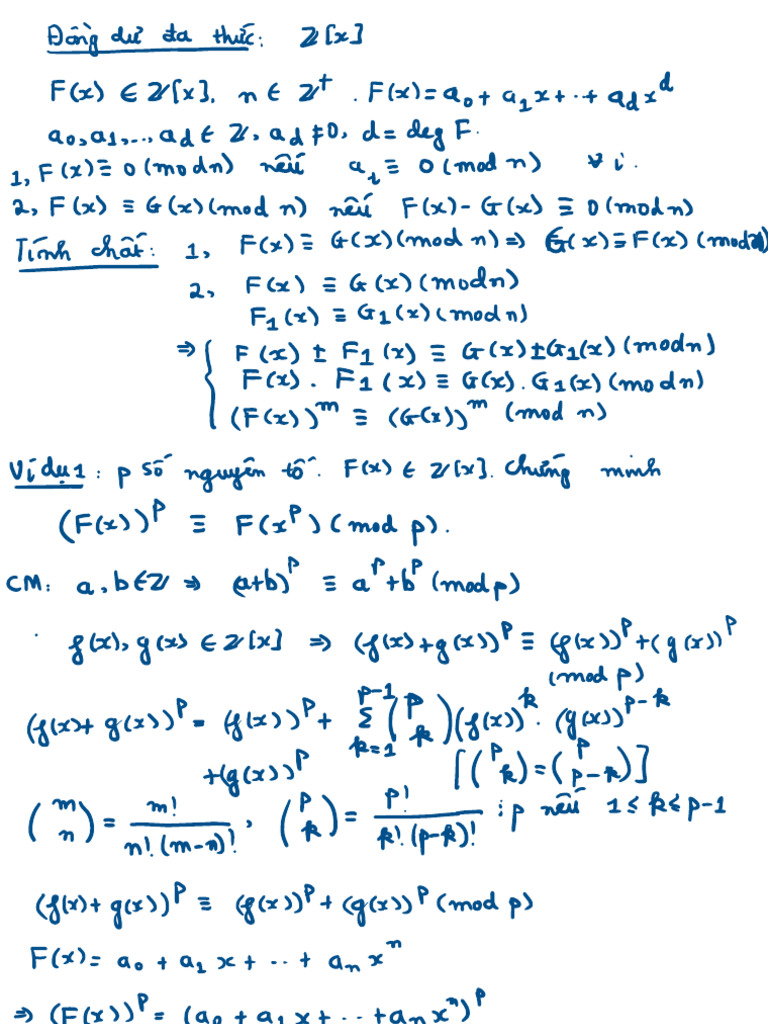 Đồng dư đa thức: ℤ[x]
F(x) ∈ ℤ[x], n ∈ ℤ⁺. F(x) = a₀ + a₁x + ... + a_d x^d
a₀, a₁, ..., a_d ∈ ℤ, a_d ≠ 0, d = deg F.
1, F(x) ≡ 0 (mod n) nếu a_i ≡ 0 (mod n) ∀ i.
2, F(x) ≡ G(x) (mod n) nếu F(x) - G(x) ≡ 0 (mod n)
Tính chất: 1, F(x) ≡ G(x) (mod n) ⇒ G(x) ≡ F(x) (mod n)
2, F(x) ≡ G(x) (mod n)
F₁(x) ≡ G₁(x) (mod n)
⇒ { F(x) ± F₁(x) ≡ G(x) ± G₁(x) (mod n)
F(x) . F₁(x) ≡ G(x) . G₁(x) (mod n)
(F(x))^m ≡ (G(x))^m (mod n)
Ví dụ 1: p số nguyên tố. F(x) ∈ ℤ[x]. Chứng minh
(F(x))^p ≡ F(x^p) (mod p).
CM: a, b ∈ ℤ ⇒ (a+b)^p ≡ a^p + b^p (mod p)
f(x), g(x) ∈ ℤ[x] ⇒ (f(x) + g(x))^p ≡ (f(x))^p + (g(x))^p
(mod p)
(f(x) + g(x))^p = (f(x))^p + Σ_{k=1}^{p-1} (p k) (f(x))^k . (g(x))^{p-k}
+ (g(x))^p [(p k) = (p p-k)]
(m n) = m!/(n!.(m-n)!, (p k) = p!/(k!.(p-k)!) ⋮ p nếu 1 ≤ k ≤ p-1
(f(x) + g(x))^p ≡ (f(x))^p + (g(x))^p (mod p)
F(x) = a₀ + a₁x + ... + a_n x^n
⇒ (F(x))^p = (a₀ + a₁x + ... + a_n x^n)^p